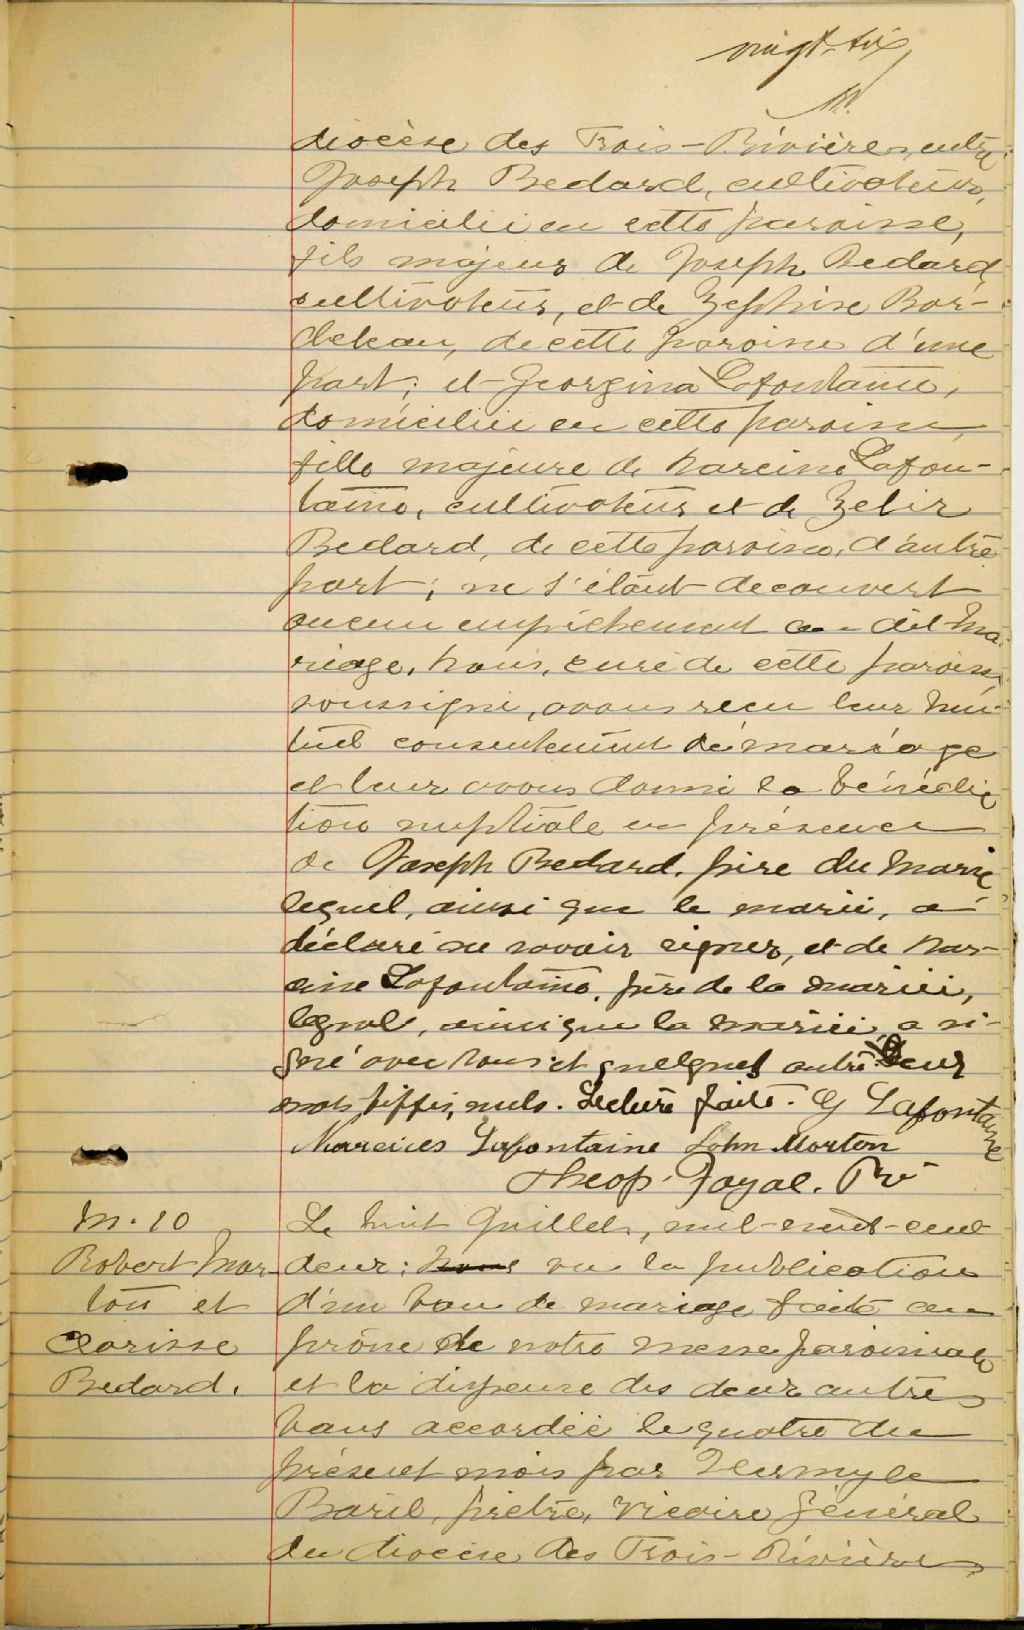 vingt-six
diocèse des Trois-Rivières, entre
Joseph Bedard, cultivateur,
domicilié en cette paroisse,
fils majeur de Joseph Bedard,
cultivateur, et de Zephise Bor-
deleau, de cette paroisse d'une
part; et Georgina Lafontaine,
domiciliée en cette paroisse,
fille majeure de Narcisse Lafon-
taine, cultivateur et de Zelir
Bedard, de cette paroisse, d'autre
part; ne s'étant decouvert
aucun empêchement au dit ma-
riage, Nous, curé de cette paroisse
soussigné, avons reçu leur mu-
tuel consentement de mariage
et leur avons donné la bénédic
tion nuptiale en présence
de Joseph Bedard, père du marié
lequel, ainsi que le marié, a
déclaré ne savoir signer, et de Nar-
cisse Lafontaine, père de la mariée,
lequel, ainsi que la mariée, a si-
gné avec nous et quelques autres. Deux
mots biffés, nuls. Lecture faite. G Lafontaine
Narcisses Lafontaine John Morton
Theop. Joyal. Ptre
M. 10
Robert Mor
ton et
Clarisse
Bedard.
Le huit Juillet, mil-neuf-cent
deux; nous vu la publication
d'un ban de mariage faite au
prône de notre messe paroissiale
et la dispense des deux autres
bans accordée le quatre du
présent mois par Hermyle
Baril, prêtre, Vicaire Général
du diocèse des Trois-Rivières,